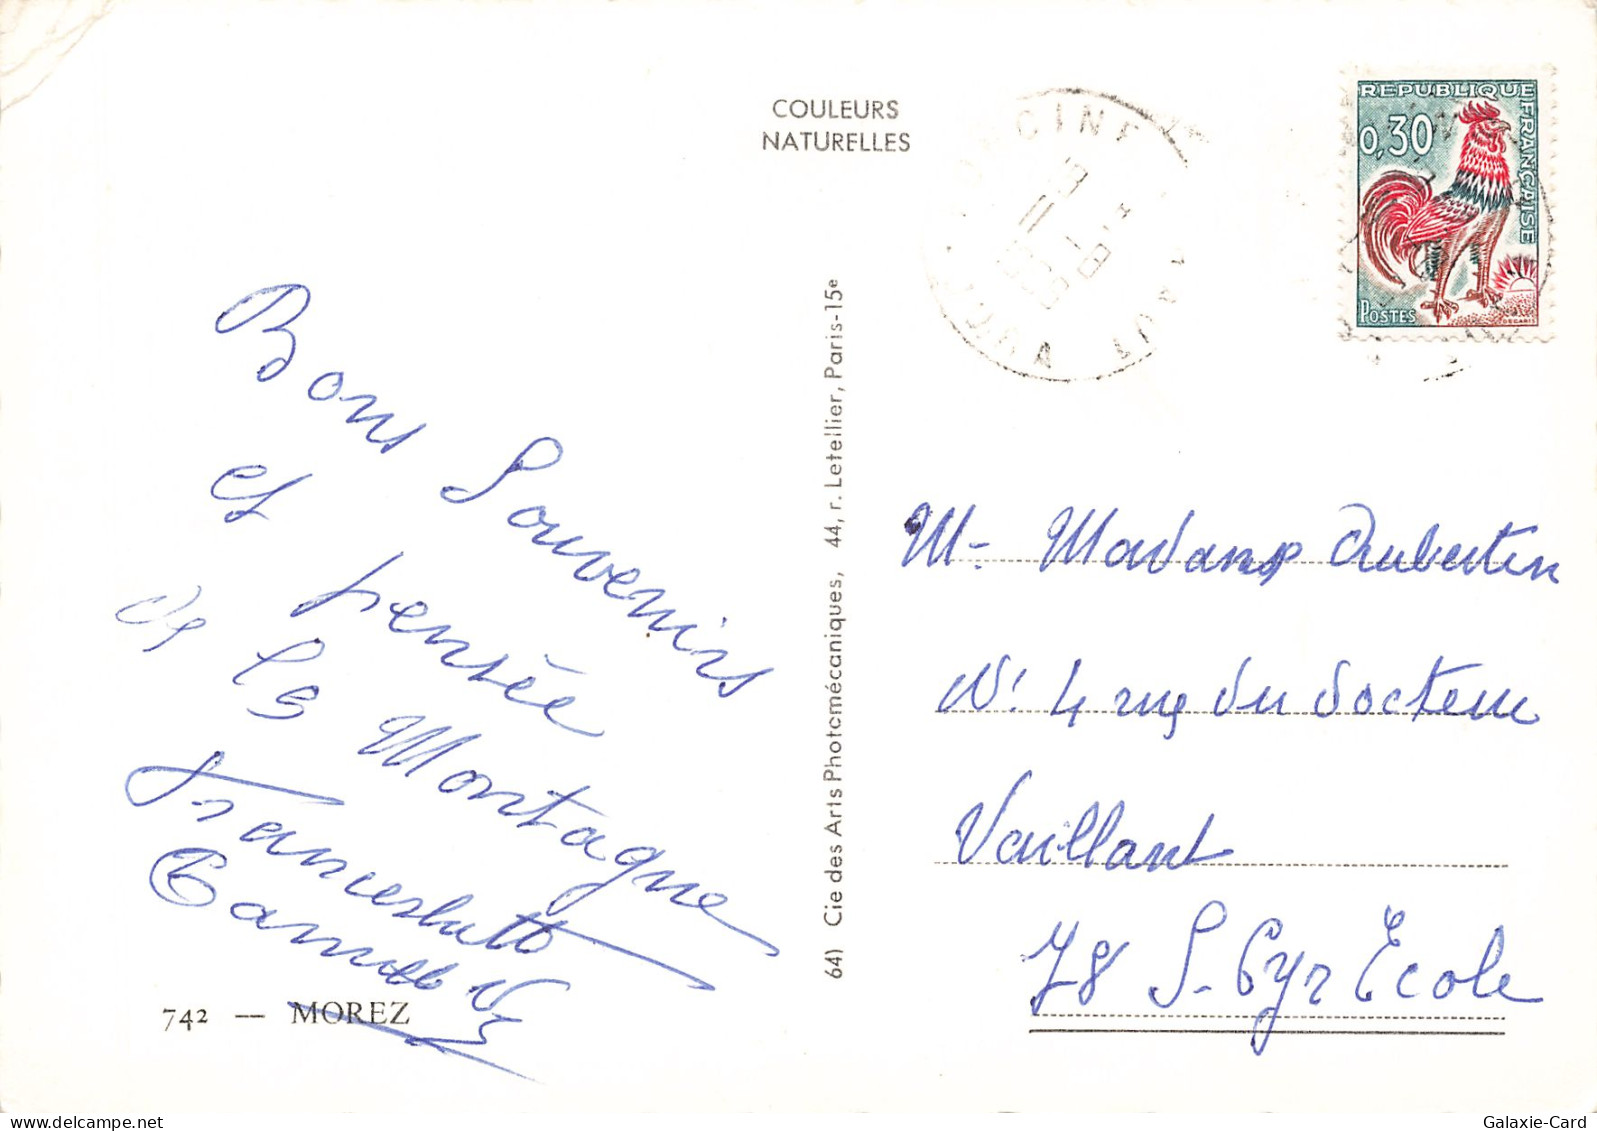 COULEURS
NATURELLES
REPUBLIQUE FRANÇAISE
0,30
POSTES
DECARIS
JURA
Bons Souvenirs
et pensée
de la Montagne
742 — MOREZ
64) Cie des Arts Photomécaniques, 44, r. Letellier, Paris-15e
M- Madame Aubertin
N° 4 rue du docteur
Vaillant
78 S- Cyr Ecole
Galaxie-Card